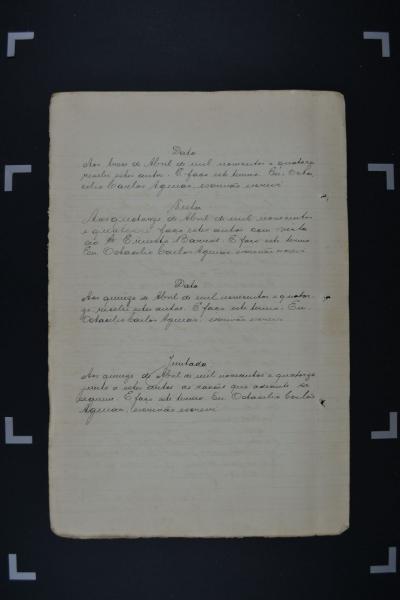 Data
Aos treze de Abril de mil novecentos e quatorze
recebi estes autos. E faço este termo. Eu, Octa-
cilio Carlos Aguiar, escrivão escrevi
Vista
Aos quatorze de Abril de mil novecentos
e quatorze faço estes autos com vista
ao Dr Ernesto E faço este termo
Eu, Octacilio Carlos Aguiar escrivão escrevi
Data
Aos quinze de Abril de mil novecentos e quator-
ze recebi estes autos. E faço este termo. Eu,
Octacilio Carlos Aguiar, escrivão escrevi
Juntada
Aos quinze de Abril de mil novecentos e quatorze
junto a estes autos as razões que adiante se
seguem. E faço este termo. Eu Octacilio Carlos
Aguiar, escrivão escrevi